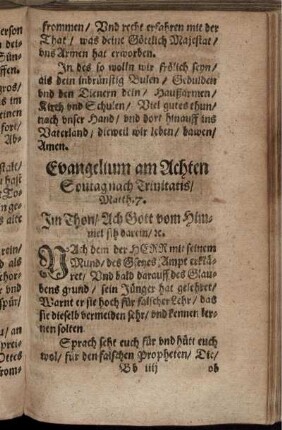 frommen/ Vnd recht erfahren mit der
That/ was deine Göttlich Majestat/
vns Armen hat erworben.
In des so wolln wir frölich seyn/
als dein inbrünstig Bulen/ Gedulden
vnd den Dienern dein/ Haußarmen/
Kirch vnd Schulen/ Viel gutes thun/
nach vnser Hand/ vnd dort hinauff ins
Vaterland/ dieweil wir leben/ bawen/
Amen.
Evangelium am Achten
Sontag nach Trinitatis/
Matth. 7.
Im Thon/ Ach Gott vom Him-
mel sih darein/ ꝛc.
NAch dem der HERR mit seinem
Mund/ des Gsetzes Ampt erklä-
ret/ Vnd bald darauff des Glau-
bens grund/ sein Jünger hat gelehret/
Warnt er sie hoch für falscher Lehr/ das
sie dieselb vermeiden sehr/ vnd kennen ler-
nen solten.
Sprach seht euch für vnd hütt euch
wol/ für den falschen Propheten/ Die/
Bb iiij
ob